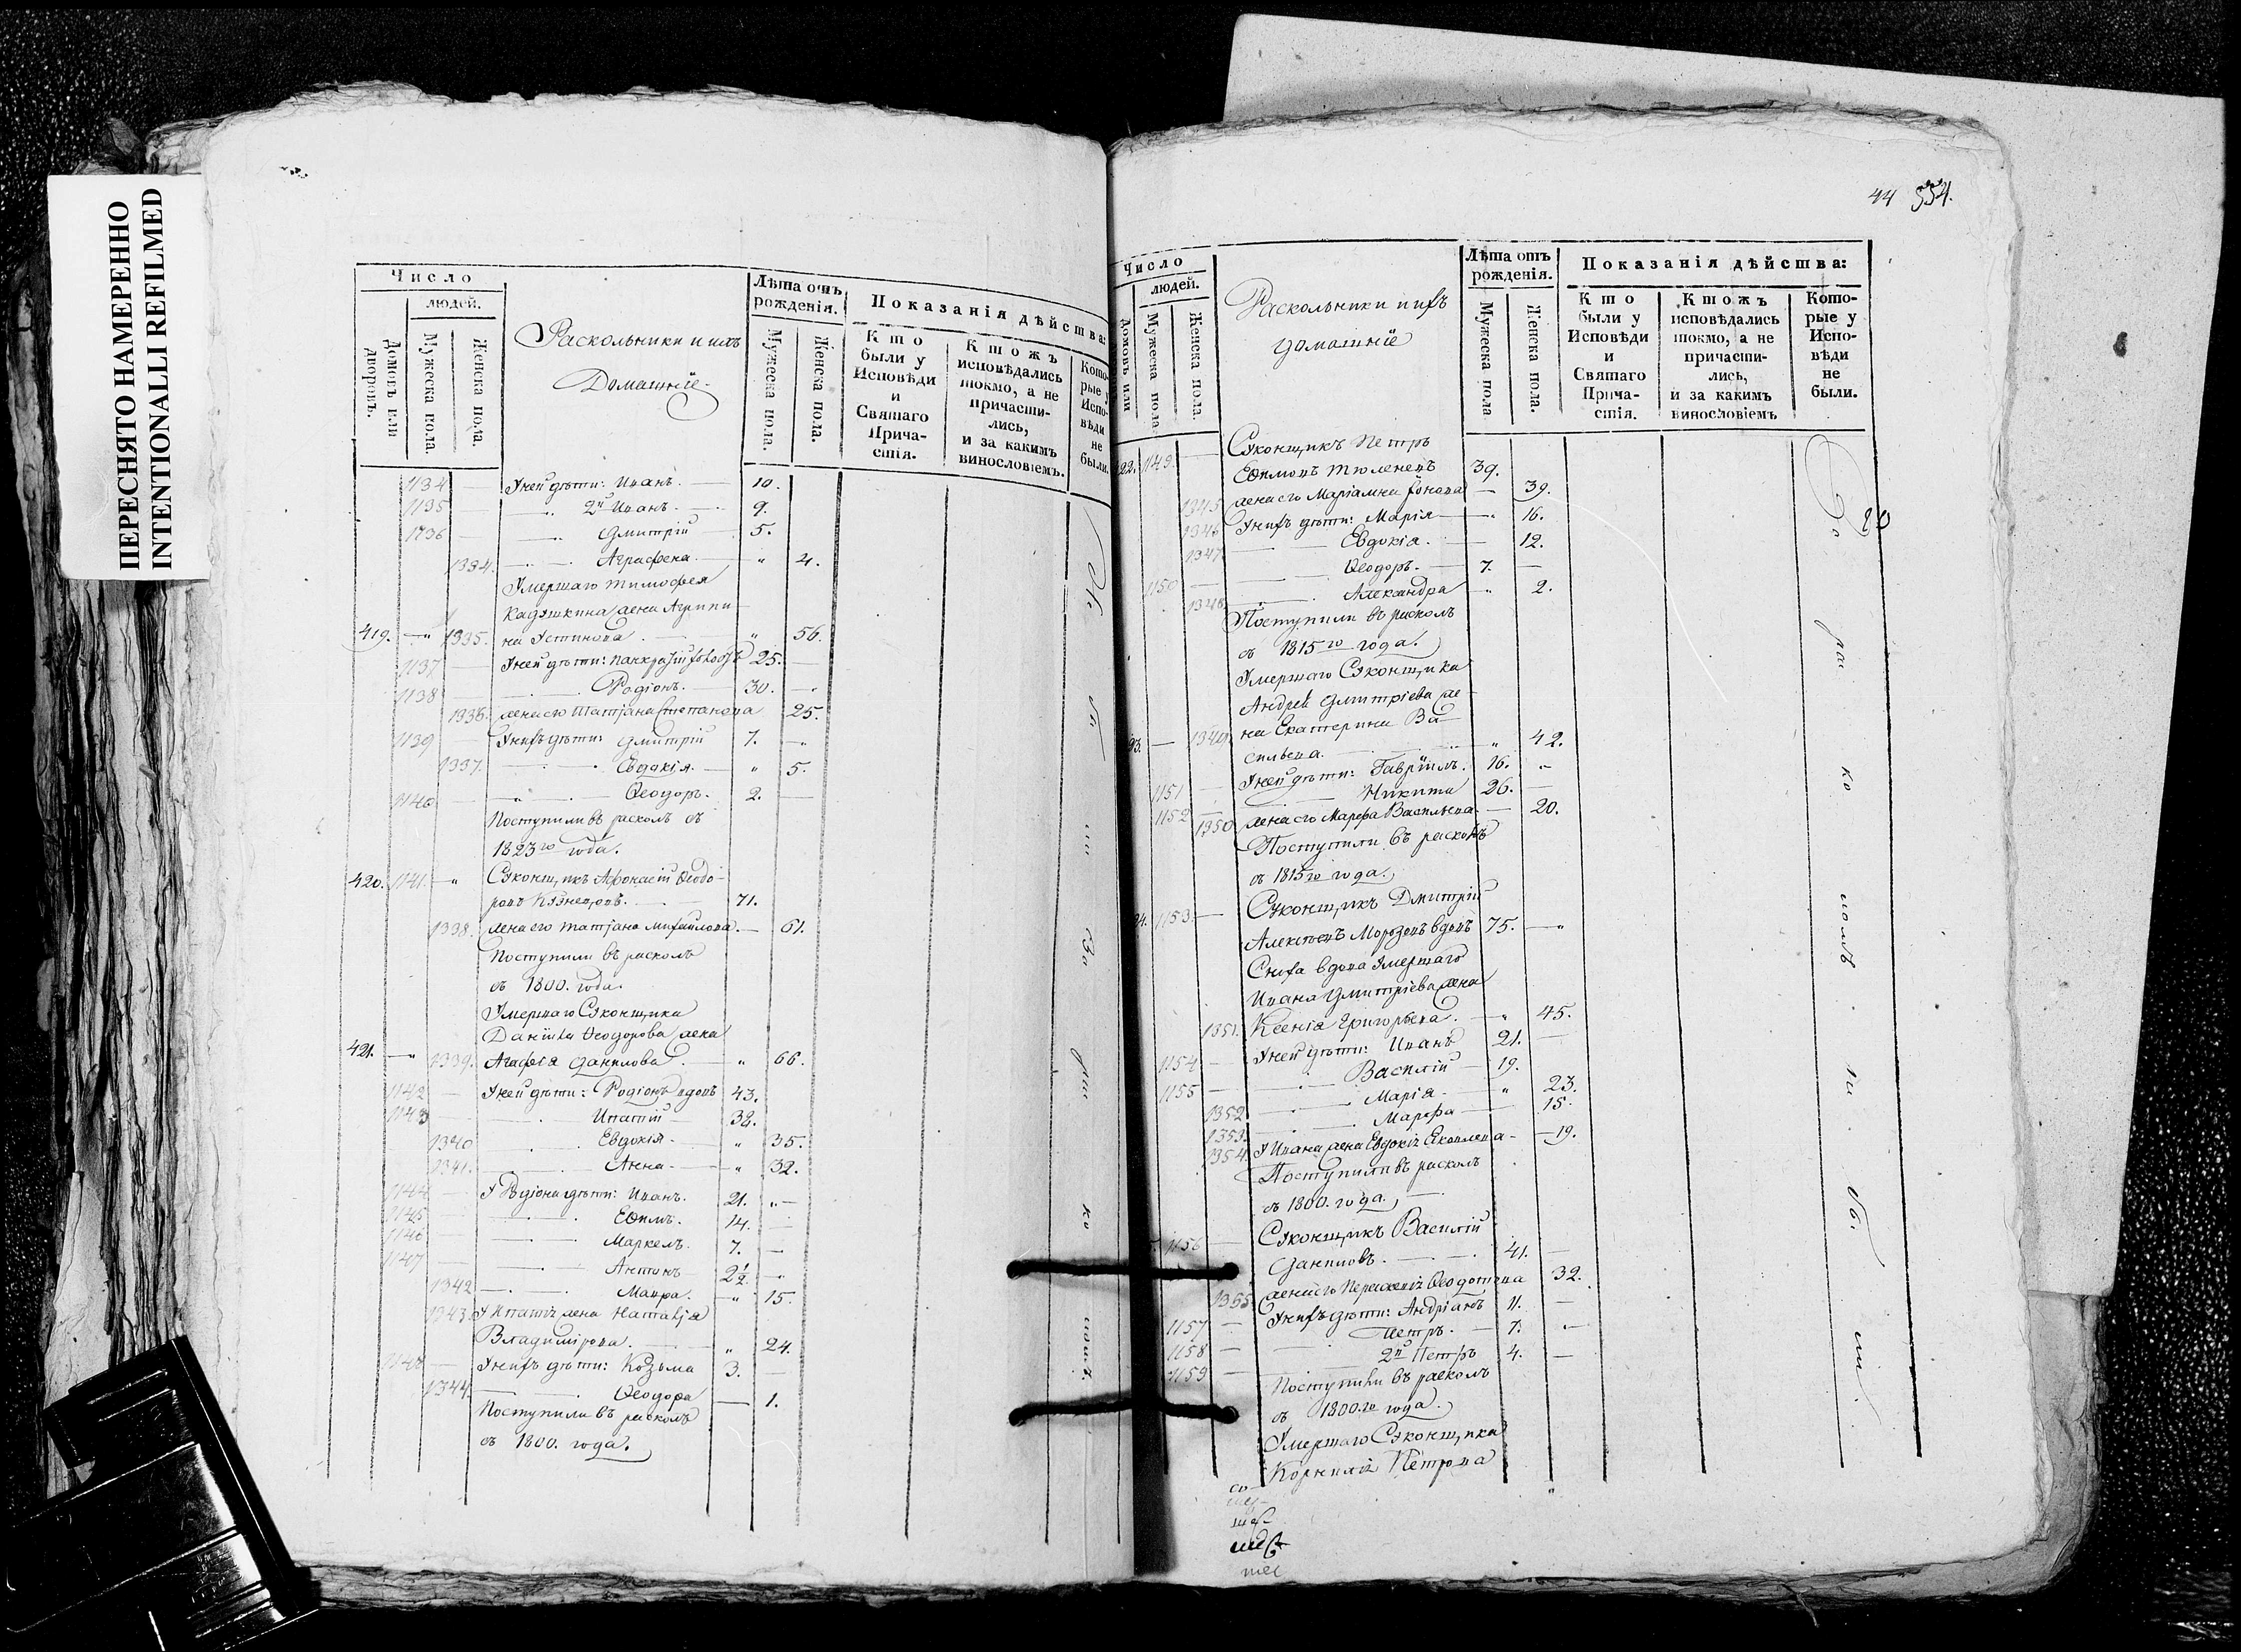 ПЕРЕСНЯТО НАМЕРЕННО
INTENTIONALLI REFILMED
Число
людей.
Домовъ или дворовъ.
Мужеска пола.
Женска пола.
Раскольники и ихъ
Домашнїе.
Лѣта отъ рожденія.
Мужеска пола.
Женска пола.
Показанія дѣйства:
Кто были у Исповѣди и Святаго Причастія.
Ктожъ исповѣдались токмо, а не причастились, и за какимъ винословіемъ.
Которые у Исповѣди не были.
1134 Унеи дѣти: Иванъ. 10.
1135 2й Иванъ. 9.
1136 Дмитрїй 5.
1334. Аграфена. " 4.
Умершаго Тимофея
Кадушкина жена Агрипи
419. " 1335. на Устинова. " 56.
1137 Унеи дѣти: 25.
1138 Родіонъ. 30.
1336. жена его Татіана Степанова 25.
1139 Унихъ дѣти: Дмитрїй 7. "
1337. Евдокія. " 5.
1140 Ѳеодоръ. 2.
Поступили въ расколъ съ
1823го года.
420. 1141. " Суконщикъ Афонасїй Ѳеодо-
ровъ Кузнецовъ. 71.
1338. жена его Татіана Михайлова. 61.
Поступили въ расколъ
съ 1800. года.
Умершаго Суконщика
Данїила Ѳеодорова жена
421. " 1339. Агафія Данилова. " 66.
1142 Унеи дѣти: Родіонъ вдовъ 43.
1143 Ипатїй 38.
1340 Евдокія. " 35.
1341. Анна. " 32.
1144 У Родіона дѣти: Иванъ. 21. "
1145 Ефимъ. 14.
1146 Маркелъ. 7.
1147 Антонъ 2½.
1342 Мавра. " 15.
1343 У Ипатія жена Наталія
Владимірова. " 24.
1148 Унихъ дѣти: Козьма 3.
1344. Ѳеодора 1.
Поступили въ расколъ
съ 1800. года.
44 554.
Число
людей.
Домовъ или
Мужеска пола.
Женска пола.
Раскольники и ихъ
домашнїе
Лѣта отъ рожденія.
Мужеска пола
Женска пола.
Показанія дѣйства:
Кто были у Исповѣди и Святаго Причастія.
Ктожъ исповѣдались токмо, а не причастились, и за какимъ винословіемъ
Которые у Исповѣди не были.
Суконщикъ Петръ
22. 1149. Ефимовъ Тюленевъ 39.
1345 жена его Маріамна 39.
1346 Унихъ дѣти: Марія " 16.
1347 Евдокія. 12.
1150 Ѳеодоръ. 7.
1348 Александра " 2.
Поступили въ расколъ
съ 1815го года.
Умершаго Суконщика
Андрея Дмитріева же
на Екатерина Ва
23. 1349. сильева. " 42.
1151 Унеи дѣти: Гавріилъ. 16. "
1152 Никита 26.
1350 жена его Марфа Васильева. 20.
Поступили въ расколъ
съ 1815го года.
Суконщикъ Дмитрїй
24. 1153. Алексѣевъ Морозовъ вдовъ 75. "
Сноха вдова умершаго
Ивана Дмитріева жена
1351. Ксенія Григорьева. " 45.
1154 Унеи дѣти: Иванъ 21.
1155 Василїй 19.
1352 Марія. " 23.
1353. Марфа 15.
1354. У Ивана жена Евдокія Яковлева 19.
Поступили въ расколъ
съ 1800. года.
Суконщикъ Василїй
1156 Даниловъ. 41.
1355. жена его Ѳеодотова 32.
1157 Унихъ дѣти: Андріанъ 11.
1158 Петръ. 7. "
1159 2й Петръ 4.
Поступили въ расколъ
съ 1800.го года.
Умершаго Суконщика
Корнилія Петрова